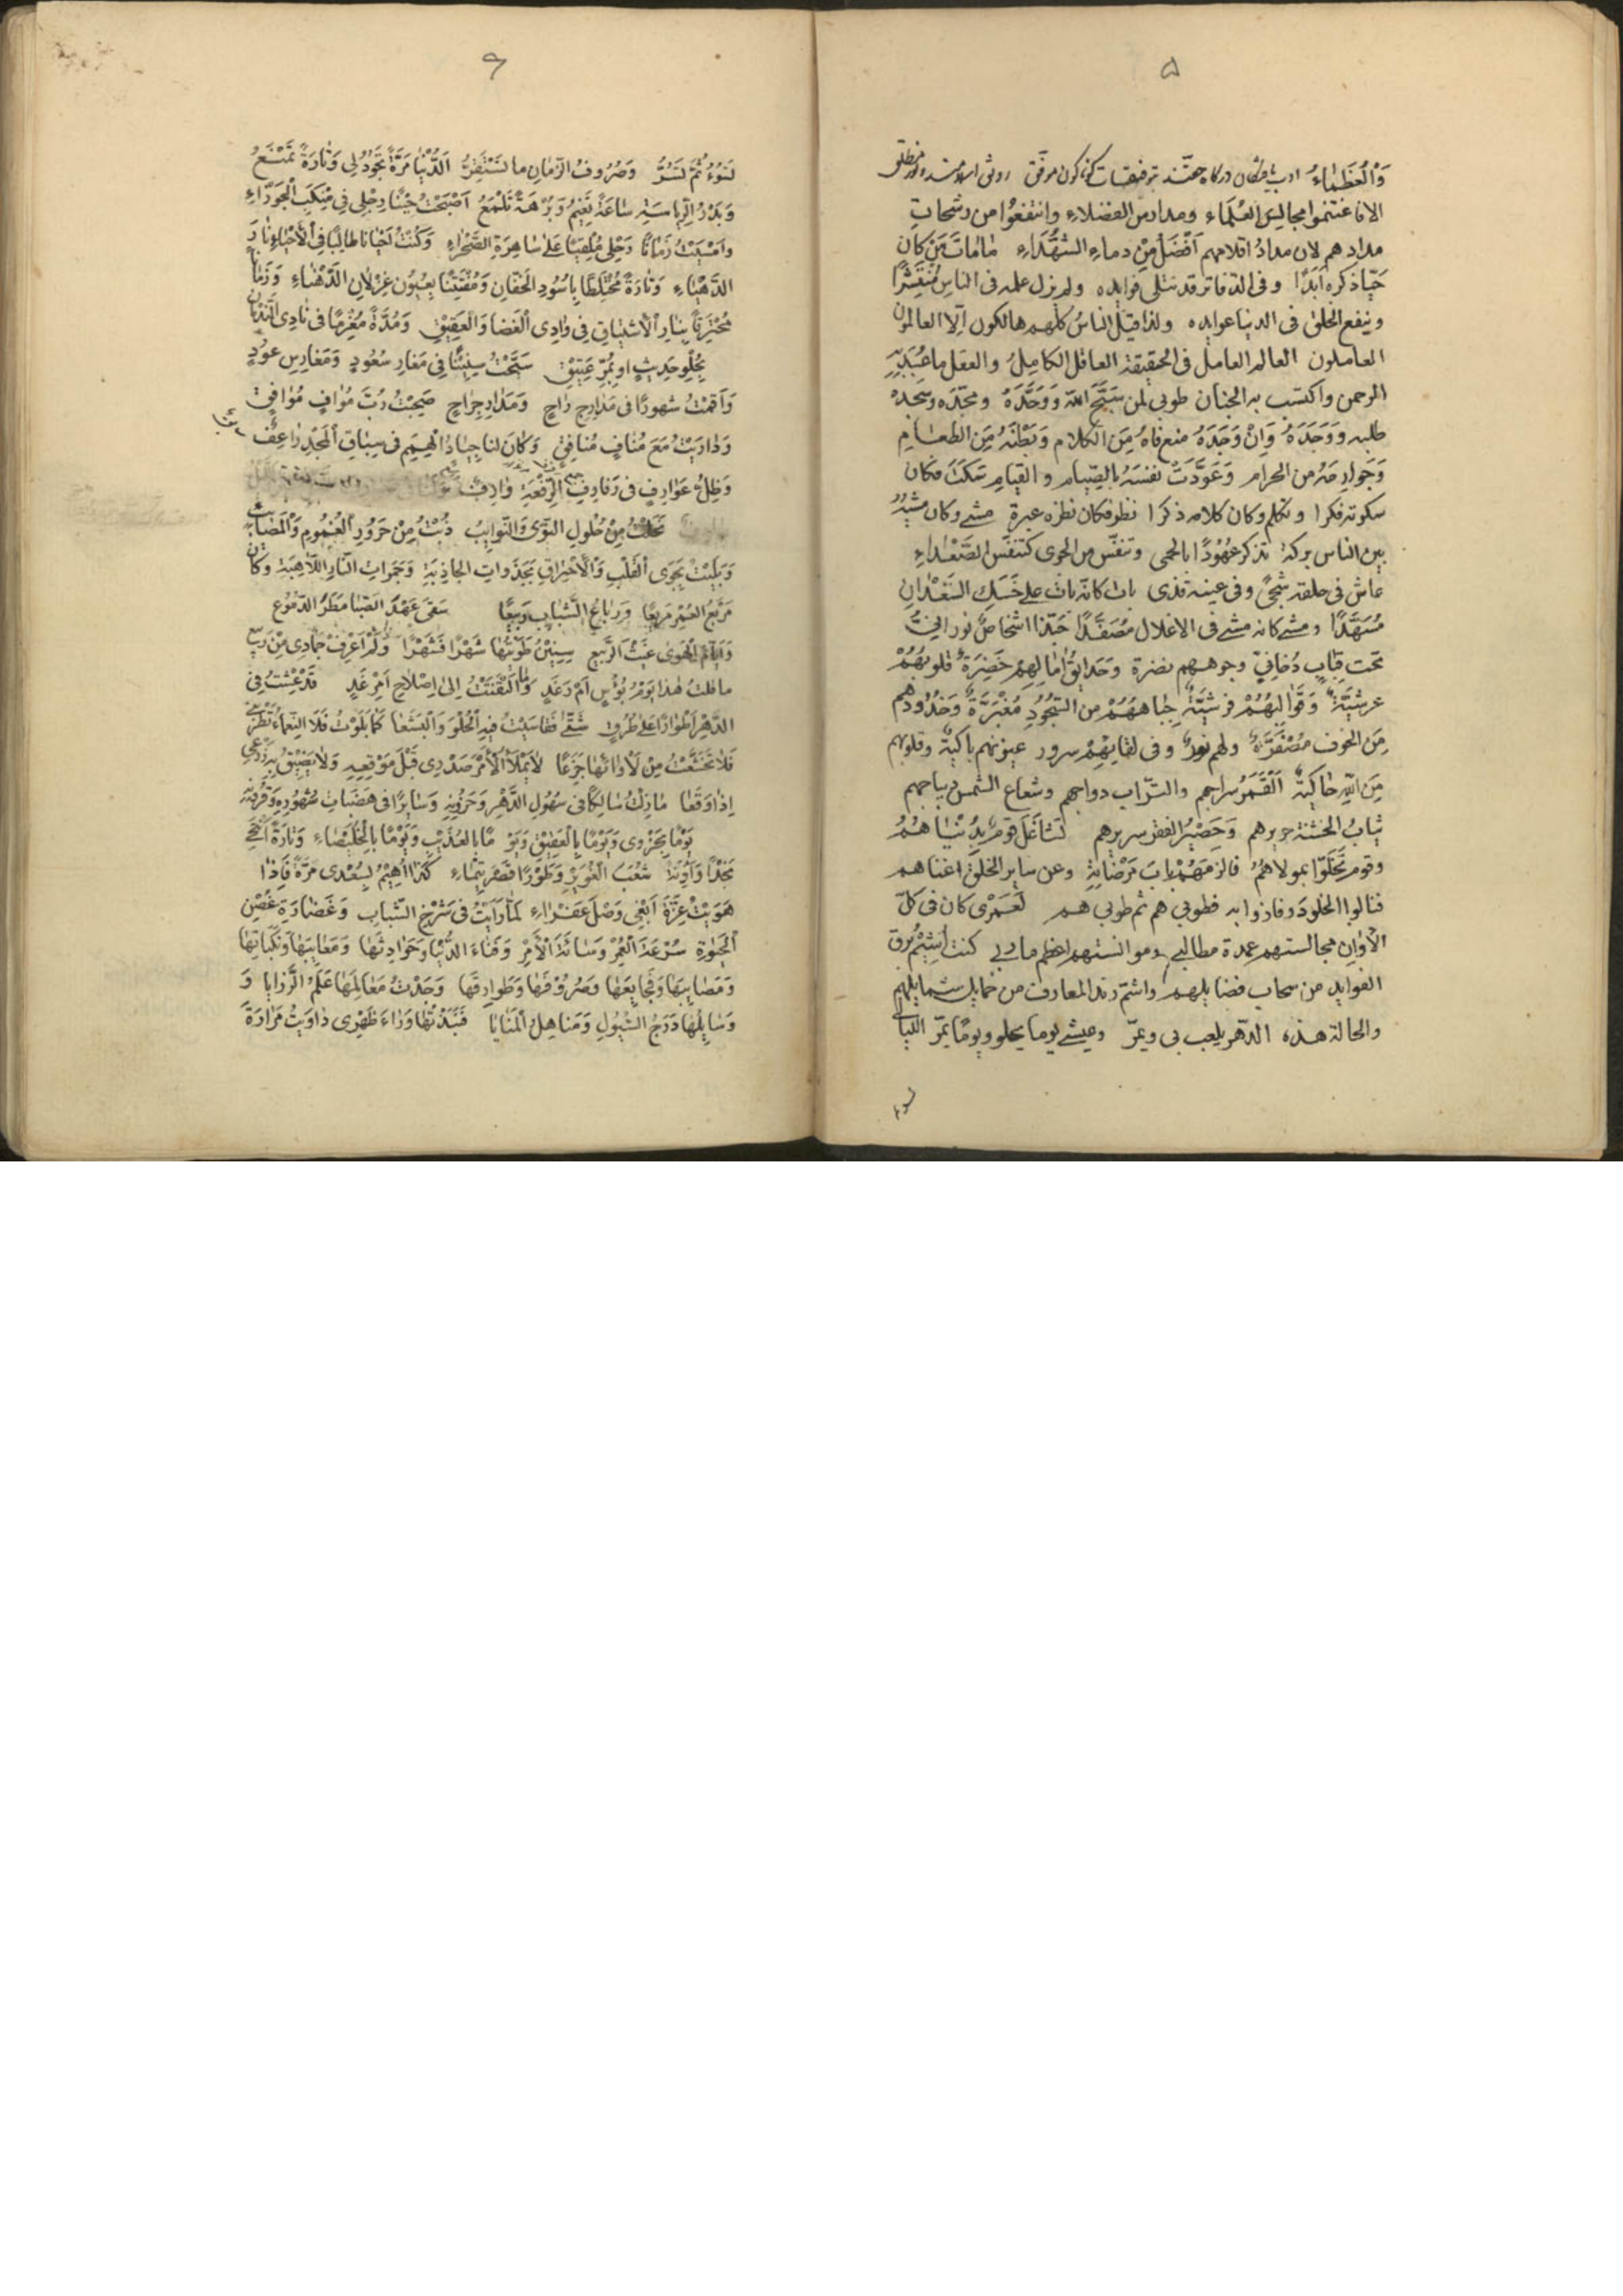 ۵
وَالْعُظَمَاءُ
الا فاغتنموا مجالس العُلَمَاء ومدارس الفضلاءِ وانتفعُوا من رشحاتِ
مدادهم لان مدادُ اقلامهم اَفْضَلُ مِنْ دماءِ الشُّهَدَاءِ مٰامٰاتَ مَنْ كان
حَيًّا ذكره اَبَدًا وفى الدّفاتر قد تتلى فوايده ولم يزل علمه فى الناسِ مُنْتَشِرًا
وينفع الخلق فى الدنيا عوايده ولذا قيل الناسُ كلّهم هالكون اِلّا العالمون
العاملون العالم العامل فى الحقيقة العاقل الكامِلُ والعقل ما عُبِدَ بِهِ
الرحمن واكتسب به الجنان طوبى لمن سَبَّحَ اللّه وَوَحَّدَهُ ومجّده وسجده
طلبه وَوَجَدَهُ وَاِنْ وَجَدَهُ منع فاهُ مِنَ الكلام وَبَطْنَهُ مِنَ الطعامِ
وَجَوارِحَهُ من الحرام وَعَوَّدَتْ نفسَهُ بالصِّيام والقيامِ سَكَتَ فكان
سكوته فكرا وتكلم وكان كلامه ذكرا نظر فكان نظره عبرة مشى وكان مَشْيُهُ
بين الناس بركة تذكر عهُوْدًا بالحمى وتنفّس من الجوى كتنفّس الصَّعْداءِ
عاش فى حلقه شجىً وفى عينه قذى بات كانّه بات على حَسَكِ السَعْدانِ
مُسَهَّدًا ومشى كانه مشى فى الاغلال مُصَفَّدًا حَبّذا اشخاصٌ نورانىٌّ
تحت قبابٍ دُخانىٍّ وجوههم نضرة وَحَدايقُ اٰمٰالِهِمْ خَضِرَةٌ قلوبُهُمْ
عرشيَّةٌ وَقَوٰالبُهُمْ فرشيَّةٌ جِبٰاهُهُمْ من السّجُودِ مُغْبَرَّةٌ وَخُدُودُهم
مِنَ الخوف مُصْفَرَّةٌ ولهم نورٌ وفى لقائِهِمْ سرور عيونهم باكيةٌ وقلوبهم
مِنَ اللّهِ حٰاكِيَةٌ اَلْقَمَرُ سراجهم والتّراب دواجهم وشعاع الشمس ديباجهم
ثيابُ الخشنة حريرهم وَحَصْيرُ الفقر سريرهم تَشٰاغَلَ قومٌ بِدُنْيٰاهُمُ
وقومٌ تَخَلَّوْا بمولاهُمُ فالزمَهُمْ بابَ مَرْضاتِهِ وعن سايرِ الخلقِ اغناهم
فنالوا الخلودَ وفازوا به فطوبى هم ثم طوبى هم لَعَمْرى كان فى كلّ
الأوٰانِ مجالستهم عمدة مطالبى وموانستهم اعظم ماربى كنت اَشيْمُ برق
الفوايد من سحاب فضايلهم واشتم رند المعارف من خمايل شمايلهم
والحالة هذه الدّهر يلعب بى ويمرّ وعيشى يوما يحلو ويومًا يمرّ الليٰالى
تسوء
۶
تَسُوْءُ ثُمَّ تَسُرُّ وَصُرُوفُ الزّمٰانِ ما تَسْتَقِرُّ اَلدُّنْيٰا مَرَّةً تَجُوْدُ لى وَتٰارَةً تَمْنَعُ
وَبَدْرُ الرِّيٰاسَةِ سٰاعَةً تَغِيْمُ وَبُرْهَةً تَلْمَعُ اَصْبَحْتُ حِيْنًا رِجْلِى فِى مَنْكَبِ الْجَوْزٰاءِ
وَاَمْسَيْتُ زَمٰانًا رَحْلِى مُلْقِيًا عَلىٰ سٰاهِرَةِ الصَّحْرٰاءِ وَكُنْتُ اَحْيٰانًا طالِبًا فِى الْاَحْيٰاءِ
الدَّهْيٰاءِ وَتٰارَةً مُخْتَلِطًا بِاُسُودِ الْخَفّانِ وَمُفْتَتِنًا بِعُيُونِ غِزْلانِ الدَّهْنٰاءِ وَزَمٰانًا
مُحْتَرِقًا بِنارِ الْاَشْتِيٰاقِ فِى وٰادِى الْغَضَا وَالْعَقِيْقِ وَمُدَّةً مُغْرَمًا فى نٰادِى النَّدْمٰانِ
بِحُلْوِ حَدِيثٍ او بِمُرِّ عَتِيْقٍ سَبَّحْتُ سِنِيْنًا فِى مَغارِ سُعُودٍ وَمَغارِسِ عُوْدٍ
وَاَقَمْتُ شهورًا فى مَدارِجِ راحٍ وَمَدارِ جِراحٍ صَحِبْتُ رُبَّ مُوٰافٍ مُوٰافِقٍ
وَدٰارَيْتُ مَعَ مُنٰافٍ مُنٰافِقٍ وَكٰانَ لنا جِيٰادُ الْهِمَمِ فى سِبٰاقِ الْمَجْدِ رٰاعِفٌ
وَظِلُّ عَوٰارِفٍ فى رَفارِفِ الرِّفْعَةِ وٰارِفٌ
نَحَلْتُ مِنْ حُلُولِ النَّوىٰ وَالنَّوايبِ ذُبْتُ مِنْ حَرُورِ الْغُمُومِ وَالْمَصٰايبِ
وَبَلِيْتُ بِجَوَى الْقَلْبِ وَالْاِحْتِراقِ بِجَذَواتِ الجاذِبَةِ وَجَمَراتِ النّارِ اللّاهِبَةِ وَكٰانَ
مَرْبَعُ العُمْرِ مَرِيعًا وَرِبٰاعُ الشَّبٰابِ وَسِيعًا سَقىٰ عَهْدَ الصَّبٰا مَطَرُ الدّمُوْعِ
وَاَيّٰامَ الْهَوىٰ غَيْثُ الرَّبيعِ سِنِيْنٌ طَوَيْتُهٰا شَهْرًا فَشَهْرًا وَلَمْ اَعْرِفْ جُمٰادى مِنْ رَبيعٍ
ما قلتُ هٰذا يَوْمُ بُؤْسٍ اَمْ رَغَدٍ وَمَا الْتَفَتُّ اِلىٰ اِصْلاحِ اَمْرِ غَدٍ قَدْ عِشْتُ فِى
الدَّهْرِ اَطْوارًا عَلىٰ طُرُقٍ شَتّىٰ فَقٰاسَيْتُ فِيهِ الْحُلْوَ وَالْبَشَعٰا كُلًّا بَلَوْتُ فَلَا النَّعْمٰاءُ تُبْطِرُنِى
فَلٰا تَخَشَّعْتُ مِنْ لَأْوٰائِهٰا جَزَعًا لٰا يَمْلَأُ الْاَمْرُ صَدْرِى قَبْلَ مَوْقِعِهِ وَلٰا يَضِيْقُ بِهِ ذَرْعِى
اِذٰا وَقَعٰا مٰازِلْتُ سٰالِكًا فى سُهُولِ الدَّهْرِ وَحَزُونِهِ وَسٰايِرًا فى هَضَبٰاتِ شُهُورِهِ وَقُرُونِهِ
يَوْمًا بِحُزْوىٰ وَيَوْمًا بِالْعَقِيْقِ وَيَوْمًا بالعُذَيْبِ وَيَوْمًا بِالْخُلَيْصٰاءِ وَتٰارَةً اَنْتَحِى
نَجْدًا وَآوِنَةً شِعْبَ الْغُوَيْرِ وَطَوْرًا قَصْرَ تَيْمٰاءِ كَذٰا اَهِيْمُ بِسُعْدى مَرَّةً فَاِذٰا
هَوَيْتُ عَزَّةَ اَبْغِى وَصْلَ عَفْرٰاءِ لَمّٰا رَاَيْتُ فى شَرْخِ الشَّبٰابِ وَغَضٰارَةِ غُصْنِ
الْحَيٰوةِ سُرْعَةَ الْعُمْرِ وَسَآمَةَ الْاَمْرِ وَفَنٰاءَ الدُّنْيٰا وَحَوٰادِثَهٰا وَمَعٰايِبَهٰا وَنَكَبٰاتِهٰا
وَمَصٰايِبَهٰا وَفَجٰايِعَهٰا وَصُرُوْفَهٰا وَطَوٰارِقَهٰا وَجَدْتُ مَعٰالِمَهٰا عَلَمُ الرَّزٰايٰا وَ
وَسٰايِلُهٰا دَرَجُ السُّيُولِ وَمَنٰاهِلُ الْمَنٰايٰا فَنَبَذْتُهٰا وَرٰاءَ ظَهْرى دٰاوَيْتُ مَرٰارَةَ